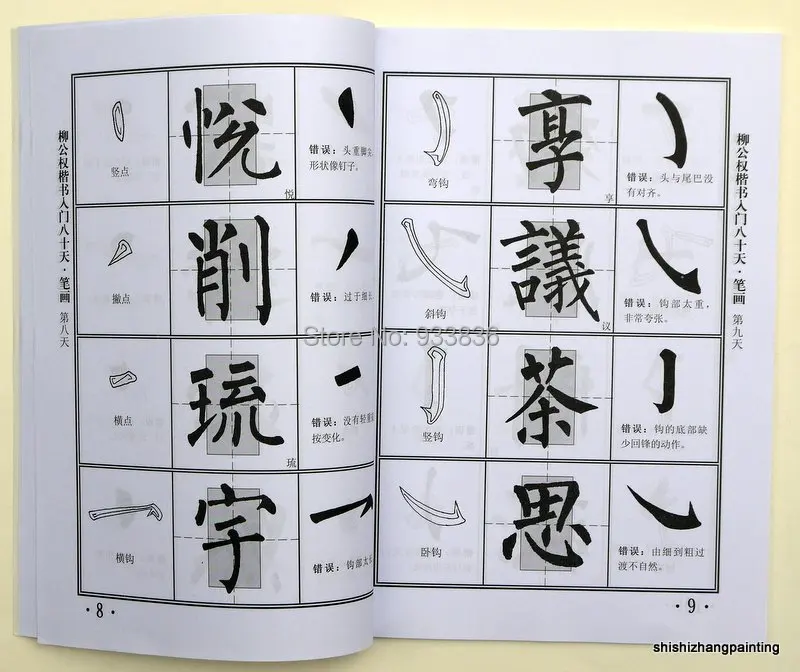 柳公权楷书入门八十天·笔画 第八天
竖点
悦
悦
错误：头重脚尖，
形状像钉子。
撇点
削
错误：过于细长
横点
琉
琉
错误：没有轻重
按变化。
横钩
字
错误：钩部太长
·8·
弯钩
享
享
错误：头与尾巴没
有对齐。
斜钩
議
议
错误：钩部太重，
非常夸张。
竖钩
茶
错误：钩的底部缺
少回锋的动作。
卧钩
思
错误：由细到粗过
渡不自然。
柳公权楷书入门八十天·笔画 第九天
·9·
Store No: 933836
shishizhangpainting